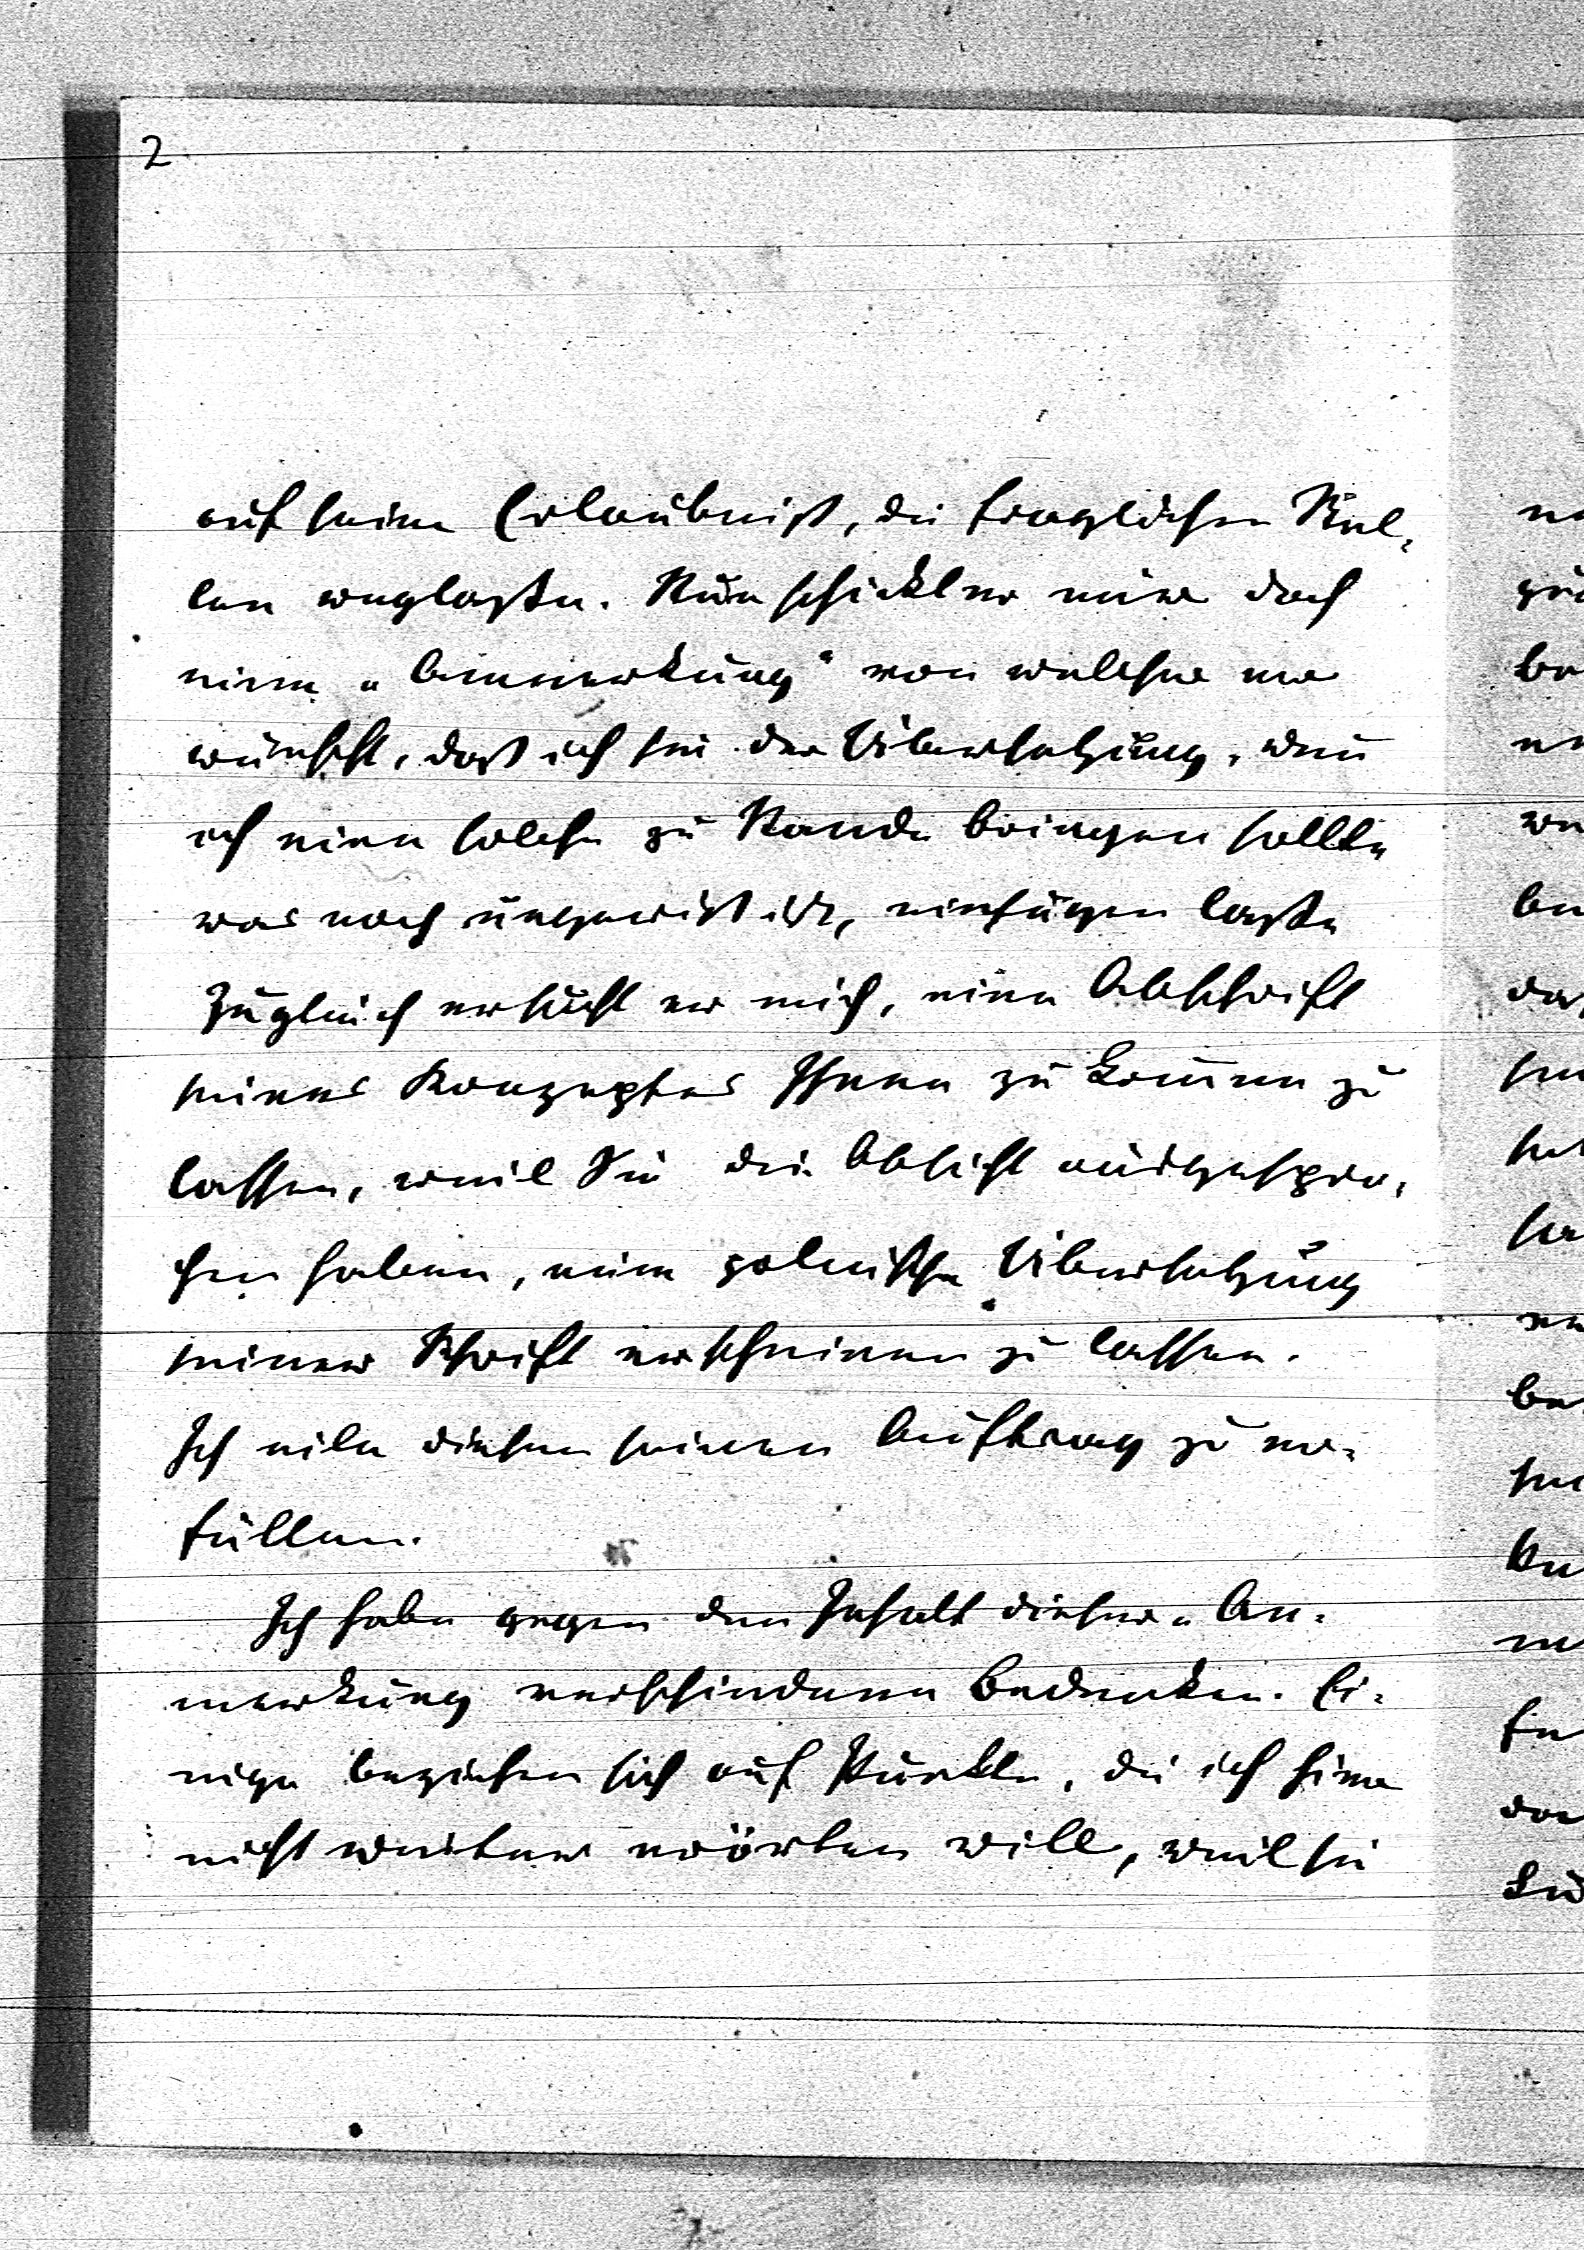 2
auf seine Erlaubniß, die fraglichen Stel-
len weglaße. Nun schickt er mir doch
eine „Anmerkung“ von welcher er
wünscht, daß ich sie der Übersetzung, wenn
ich eine solche zu Stande bringen sollte
was noch ungewiß ist, einfügen laße
Zugleich ersucht er mich, eine Abschrift
seines Konzeptes Ihnen zu kommen zu
lassen, weil Sie die Absicht ausgespro-
chen haben, eine polnische Übersetzung
seiner Schrift erscheinen zu lassen.
Ich eile diesen seinen Auftrag zu er-
füllen.
Ich habe gegen den Inhalt dieser „An-
merkung verschiedene Bedenken. Ei-
nige beziehen sich auf Punkte, die ich hier
nicht weiter erörten will, weil sie